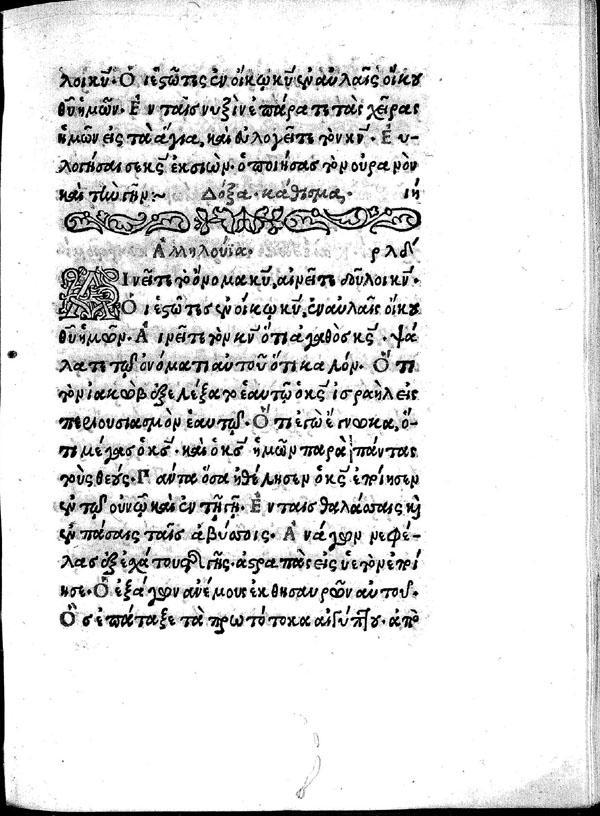 λοι κυ̅. Ὁ ἱ ἑστῶτες ἐν οἴκῳ κυ̅ ἐν αὐλαῖς οἴκου
θυ̅ ἡμῶν. Ἐν ταῖς νυξὶν ἐπάρατε τὰς χεῖρας
ἡμῶν εἰς τὰ ἅγια, καὶ εὐλογεῖτε τὸν κν̅. Εὐ-
λογήσαι σε κς̅ ἐκ σιὼν. ὁ ποιήσας τὸν οὐρανὸν
καὶ τὴν γῆν:~ Δόξα. κάθισμα. ιη
Ἀλληλούϊα. ρλδʹ
ΑΙνεῖτε τὸ ὄνομα κυ̅, αἰνεῖτε δοῦλοι κν̅.
Ὁ ἱ ἑστῶτες ἐν οἴκῳ κυ̅, ἐν αὐλαῖς οἴκου
θυ̅ ἡμῶν. Αἰνεῖτε τὸν κν̅ ὅτι ἀγαθὸς κς̅. ψά
λατε τῷ ὀνόματι αὐτοῦ ὅτι καλόν. Ὅτι
τὸν ἰακὼβ ἐξελέξατο ἑαυτῷ ὁ κς̅ ἰσραὴλ εἰς
περιουσιασμὸν ἑαυτῷ. Ὅτι ἐγὼ ἔγνωκα, ὅ-
τι μέγας ὁ κς̅. καὶ ὁ κς̅ ἡμῶν παρὰ πάντας
τοὺς θεούς. Πάντα ὅσα ἠθέλησεν ὁ κς̅ ἐποίησεν
ἐν τῷ οὐνῷ καὶ ἐν τῇ γῇ. Ἐν ταῖς θαλάσσαις κὶ
ἐν πάσαις ταῖς ἀβύσσοις. Ἀνάγων νεφέ-
λας ἐξ ἐσχάτου τῆς γῆς. ἀστραπὰς εἰς ὑετὸν ἐποί
ησε. Ὁ ἐξάγων ἀνέμους ἐκ θησαυρῶν αὐτοῦ.
Ὃς ἐπάταξε τὰ πρωτότοκα αἰγύπτου. ἀπὸ